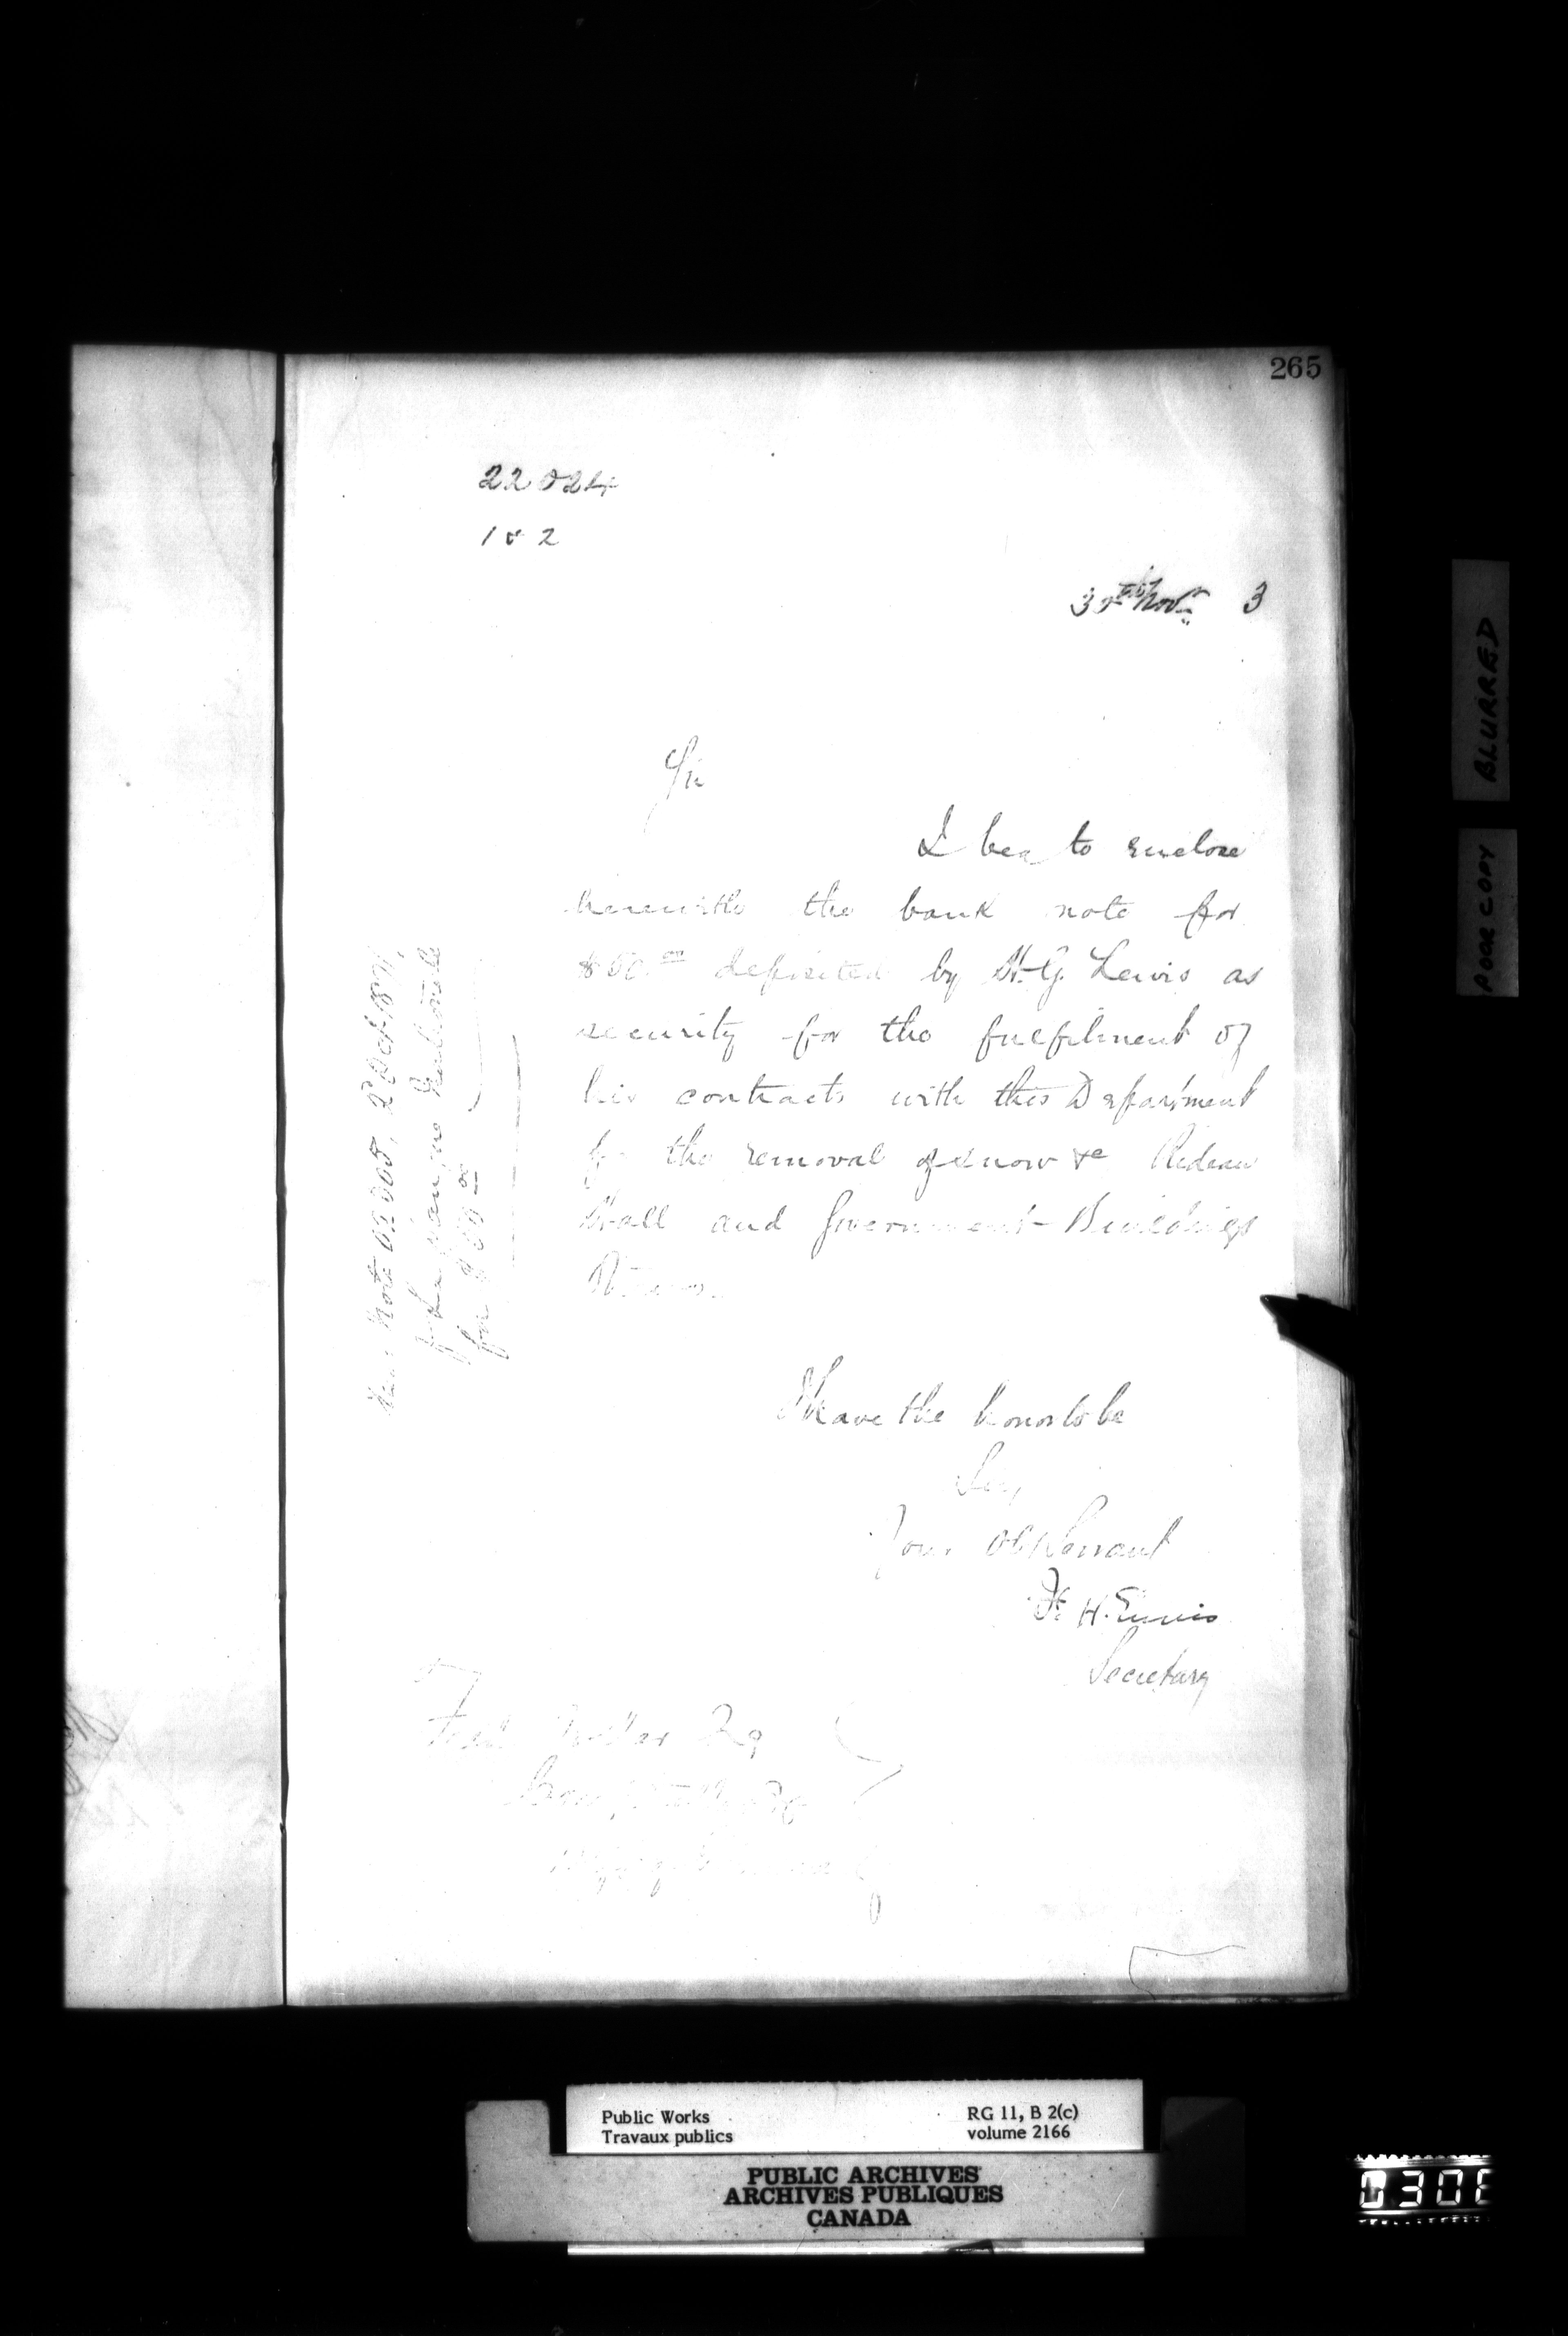 265
22024
1 & 2
30th Novr 3
Sir
I beg to enclose
herewith the bank note for
$50.00 deposited by H. G. Lewis as
security for the fulfilment of
his contracts with this Department
for the removal of snow &c Rideau
Hall and Government Buildings
Ottawa.
I have the honor to be
Sir,
Your Ob Servant
F. H. Ennis
Secretary
Note 2 Oct
for $50.00
BLURRED
POOR COPY
Public Works
Travaux publics
RG 11, B 2(c)
volume 2166
PUBLIC ARCHIVES
ARCHIVES PUBLIQUES
CANADA